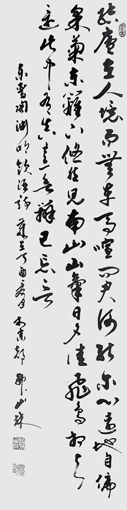 結廬在人境而無車馬喧問君何能爾心遠地自偏
采菊東籬下悠然見南山山氣日夕佳飛鳥相與
還此中有真意欲辨已忘言
東晉陶淵明飲酒詩